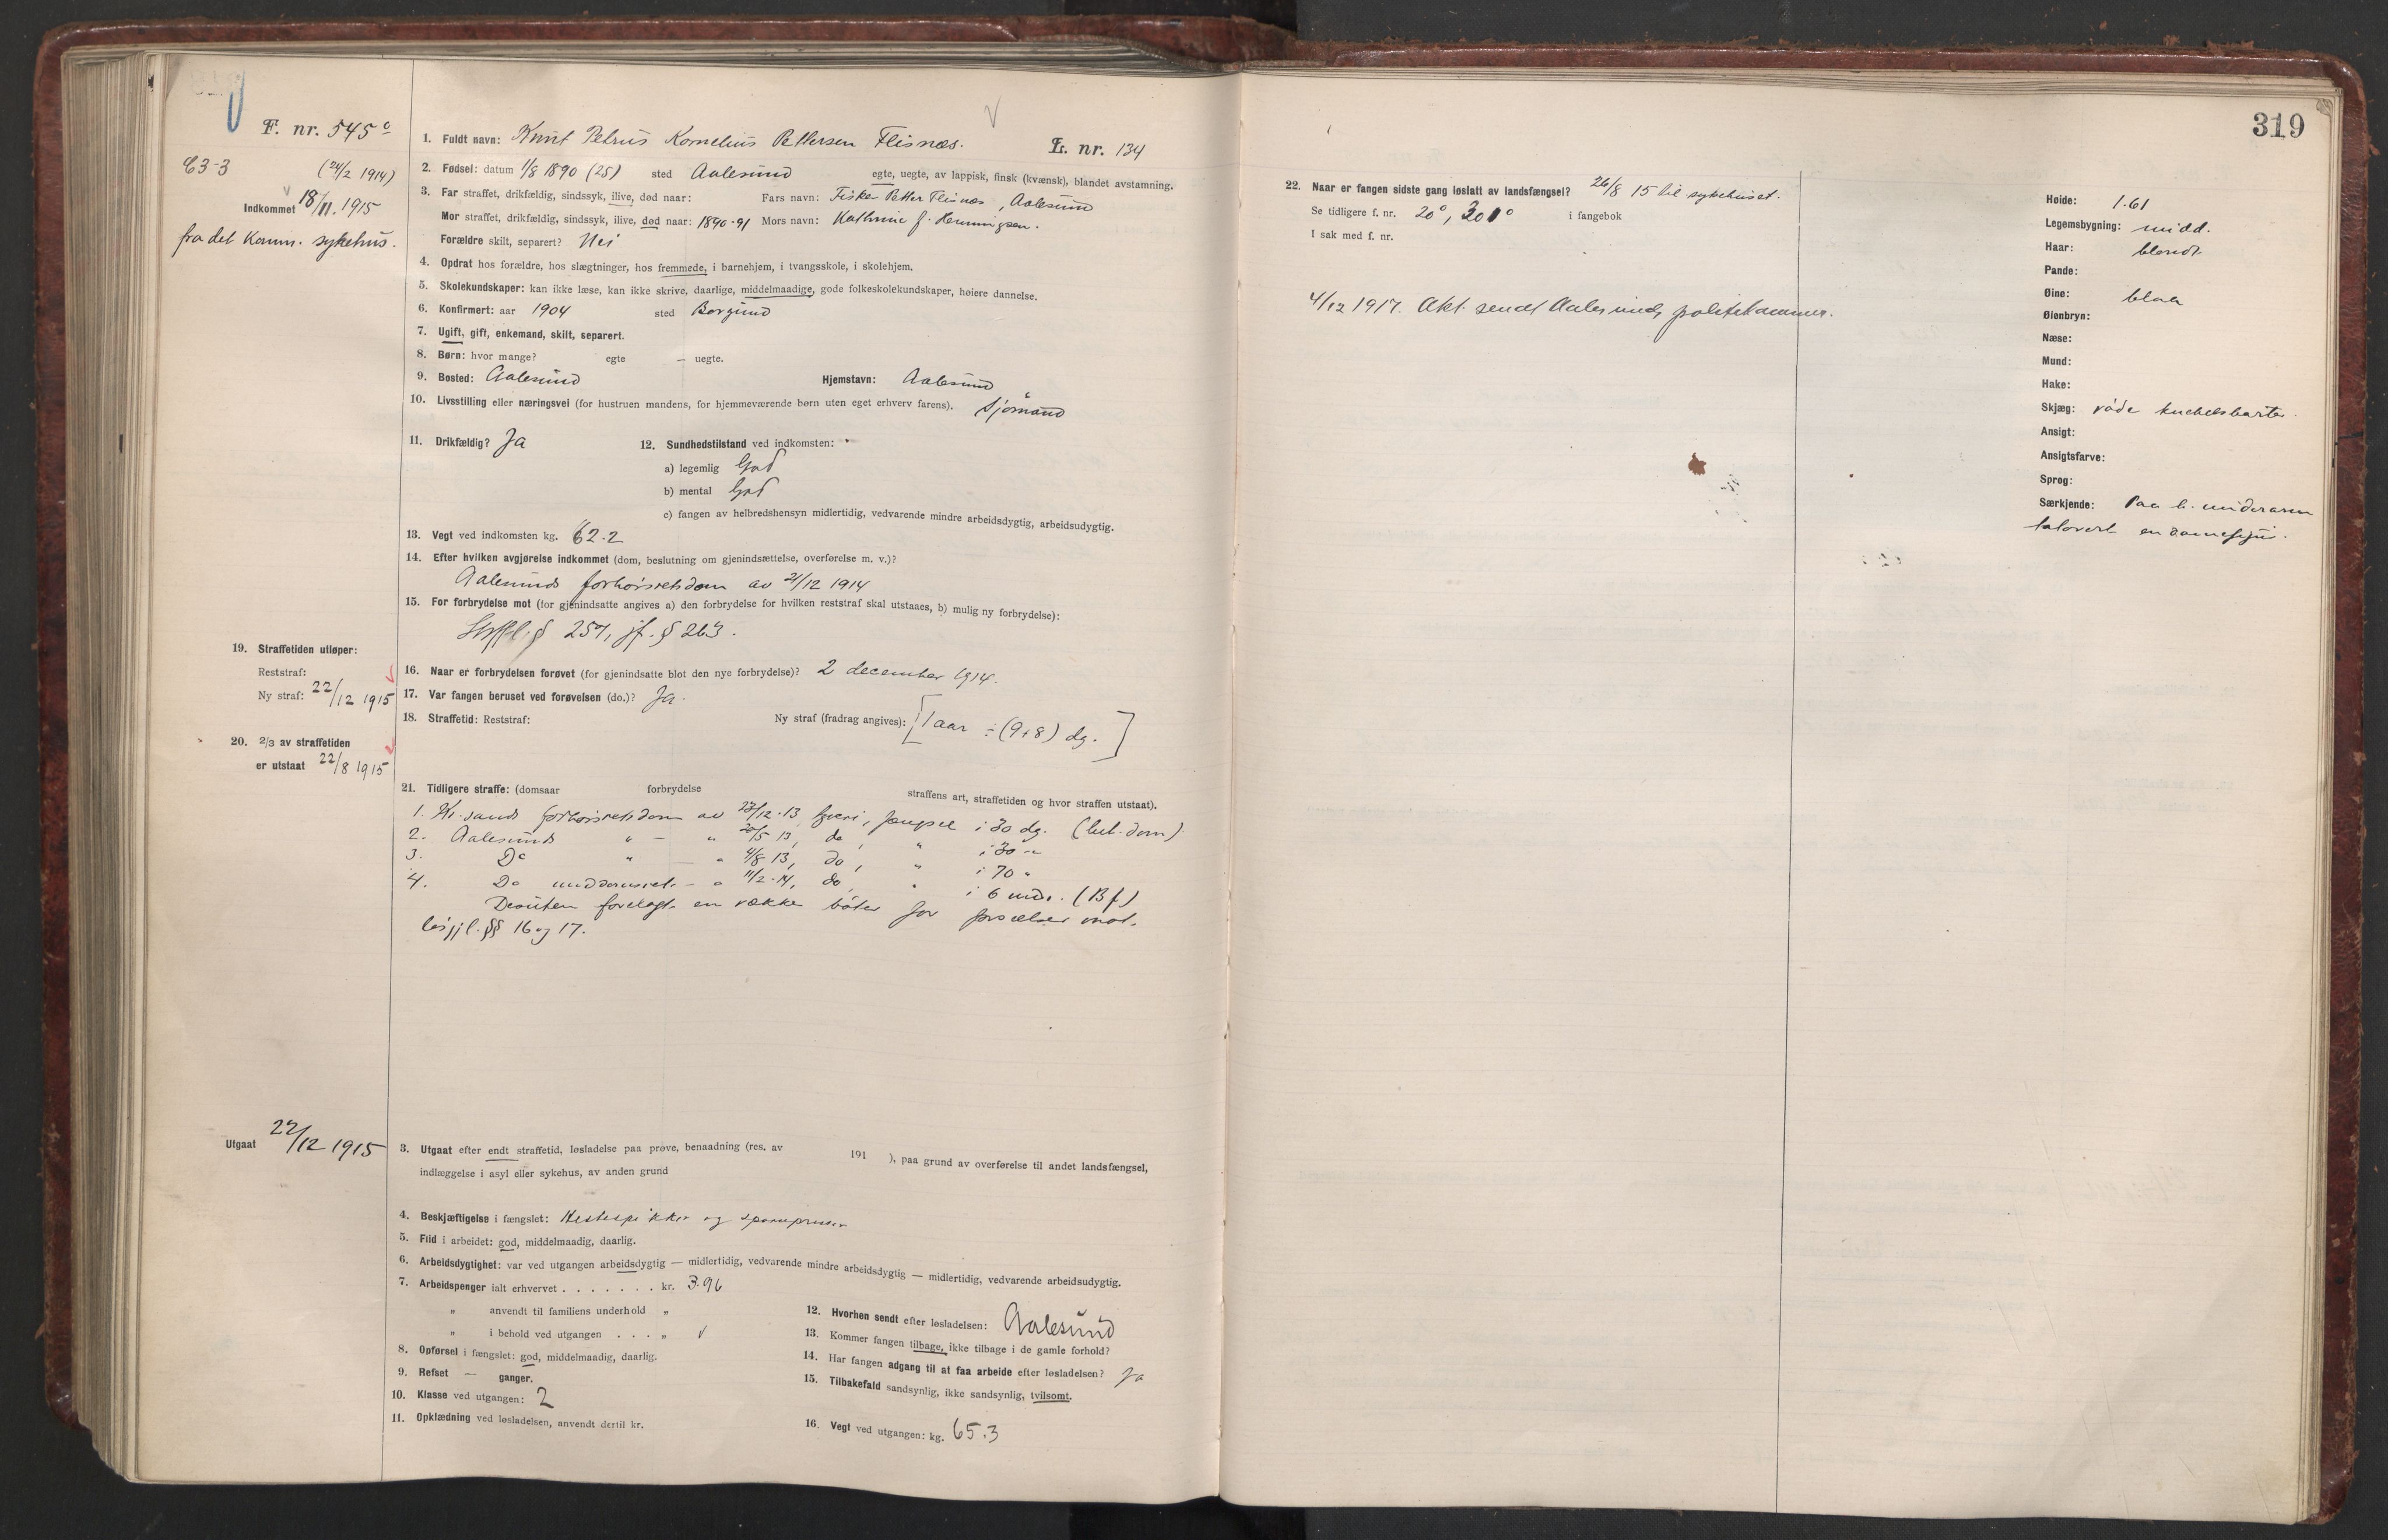 F. nr. 545º
C3-3
(24/2 1914)
Indkommet 18/11. 1915
fra det Komm. sykehus.
1. Fuldt navn: Knut Petrus Kornelius Pettersen Flisnes.
L. nr. 134
2. Fødsel: datum 1/8 1890 (25) sted Aalesund egte, uegte, av lappisk, finsk (kvænsk), blandet avstamning.
3. Far straffet, drikfældig, sindssyk, ilive, død naar: Fars navn: Fisker Petter Flisnes, Aalesund
Mor straffet, drikfældig, sindssyk, ilive, død naar: 1890-91 Mors navn: Kathrine f. Henningsen.
Forældre skilt, separert? Nei
4. Opdrat hos forældre, hos slægtninger, hos fremmede, i barnehjem, i tvangsskole, i skolehjem.
5. Skolekundskaper: kan ikke læse, kan ikke skrive, daarlige, middelmaadige, gode folkeskolekundskaper, høiere dannelse.
6. Konfirmert: aar 1904 sted Borgund
7. Ugift, gift, enkemand, skilt, separert.
8. Børn: hvor mange? egte — uegte.
9. Bosted: Aalesund Hjemstavn: Aalesund
10. Livsstilling eller næringsvei (for hustruen mandens, for hjemmeværende børn uten eget erhverv farens). Sjømand
11. Drikfældig? Ja
12. Sundhedstilstand ved indkomsten:
a) legemlig God
b) mental God
c) fangen av helbredshensyn midlertidig, vedvarende mindre arbeidsdygtig, arbeidsudygtig.
13. Vegt ved indkomsten kg. 62.2
14. Efter hvilken avgjørelse indkommet (dom, beslutning om gjenindsættelse, overførelse m. v.)?
Aalesunds forhørsretsdom av 21/12 1914
15. For forbrydelse mot (for gjenindsatte angives a) den forbrydelse for hvilken reststraf skal utstaaes, b) mulig ny forbrydelse):
Strfl. § 257, jf. § 263.
16. Naar er forbrydelsen forøvet (for gjenindsatte blot den nye forbrydelse)? 2 december 1914.
17. Var fangen beruset ved forøvelsen (do.)? Ja.
18. Straffetid: Reststraf: Ny straf (fradrag angives): [1 aar ÷ (9+8) dg.]
19. Straffetiden utløper:
Reststraf:
Ny straf: 22/12 1915
20. 2/3 av straffetiden
er utstaat 22/8 1915
21. Tidligere straffe: (domsaar forbrydelse straffens art, straffetiden og hvor straffen utstaat).
1. Kr.sands forhørsretsdom av /12.13, tyveri, fængsel i 30 dg. (bet. dom)
2. Aalesunds " — " 20/5 13, do, " i 30 -"
3. Do " — " 4/8 13, do, " i 70 "
4. Do meddomsret - " 11/2.14, do, " i 6 mdr. (Bf)
Desuten forelagt en række bøter for forseelser mot
løsgjl. §§ 16 og 17.
Utgaat 22/12 1915
3. Utgaat efter endt straffetid, løsladelse paa prøve, benaadning (res. av 191 ), paa grund av overførelse til andet landsfængsel,
indlæggelse i asyl eller sykehus, av anden grund
4. Beskjæftigelse i fængslet: Hestespikker og
5. Flid i arbeidet: god, middelmaadig, daarlig.
6. Arbeidsdygtighet: var ved utgangen arbeidsdygtig — midlertidig, vedvarende mindre arbeidsdygtig — midlertidig, vedvarende arbeidsudygtig.
7. Arbeidspenger ialt erhvervet . . . . . . . kr. 3.96
" anvendt til familiens underhold "
" i behold ved utgangen . . . "
8. Opførsel i fængslet: god, middelmaadig, daarlig.
9. Refset — ganger.
10. Klasse ved utgangen: 2
11. Opklædning ved løsladelsen, anvendt dertil kr.
12. Hvorhen sendt efter løsladelsen: Aalesund
13. Kommer fangen tilbage, ikke tilbage i de gamle forhold?
14. Har fangen adgang til at faa arbeide efter løsladelsen? Ja
15. Tilbakefald sandsynlig, ikke sandsynlig, tvilsomt.
16. Vegt ved utgangen: kg. 65.3
319
22. Naar er fangen sidste gang løslatt av landsfængsel? 26/8 15 til sykehuset.
Se tidligere f. nr. 20º, 301º i fangebok
I sak med f. nr.
4/12 1917. Akt. sendt Aalesunds politikammer.
Høide: 1.61
Legemsbygning: midd.
Haar: blondt
Pande:
Øine: blaa
Øienbryn:
Næse:
Mund:
Hake:
Skjæg: røde knebelsbarter.
Ansigt:
Ansigtsfarve:
Sprog:
Særkjende: Paa h. underarm
tatovert en damefigur.